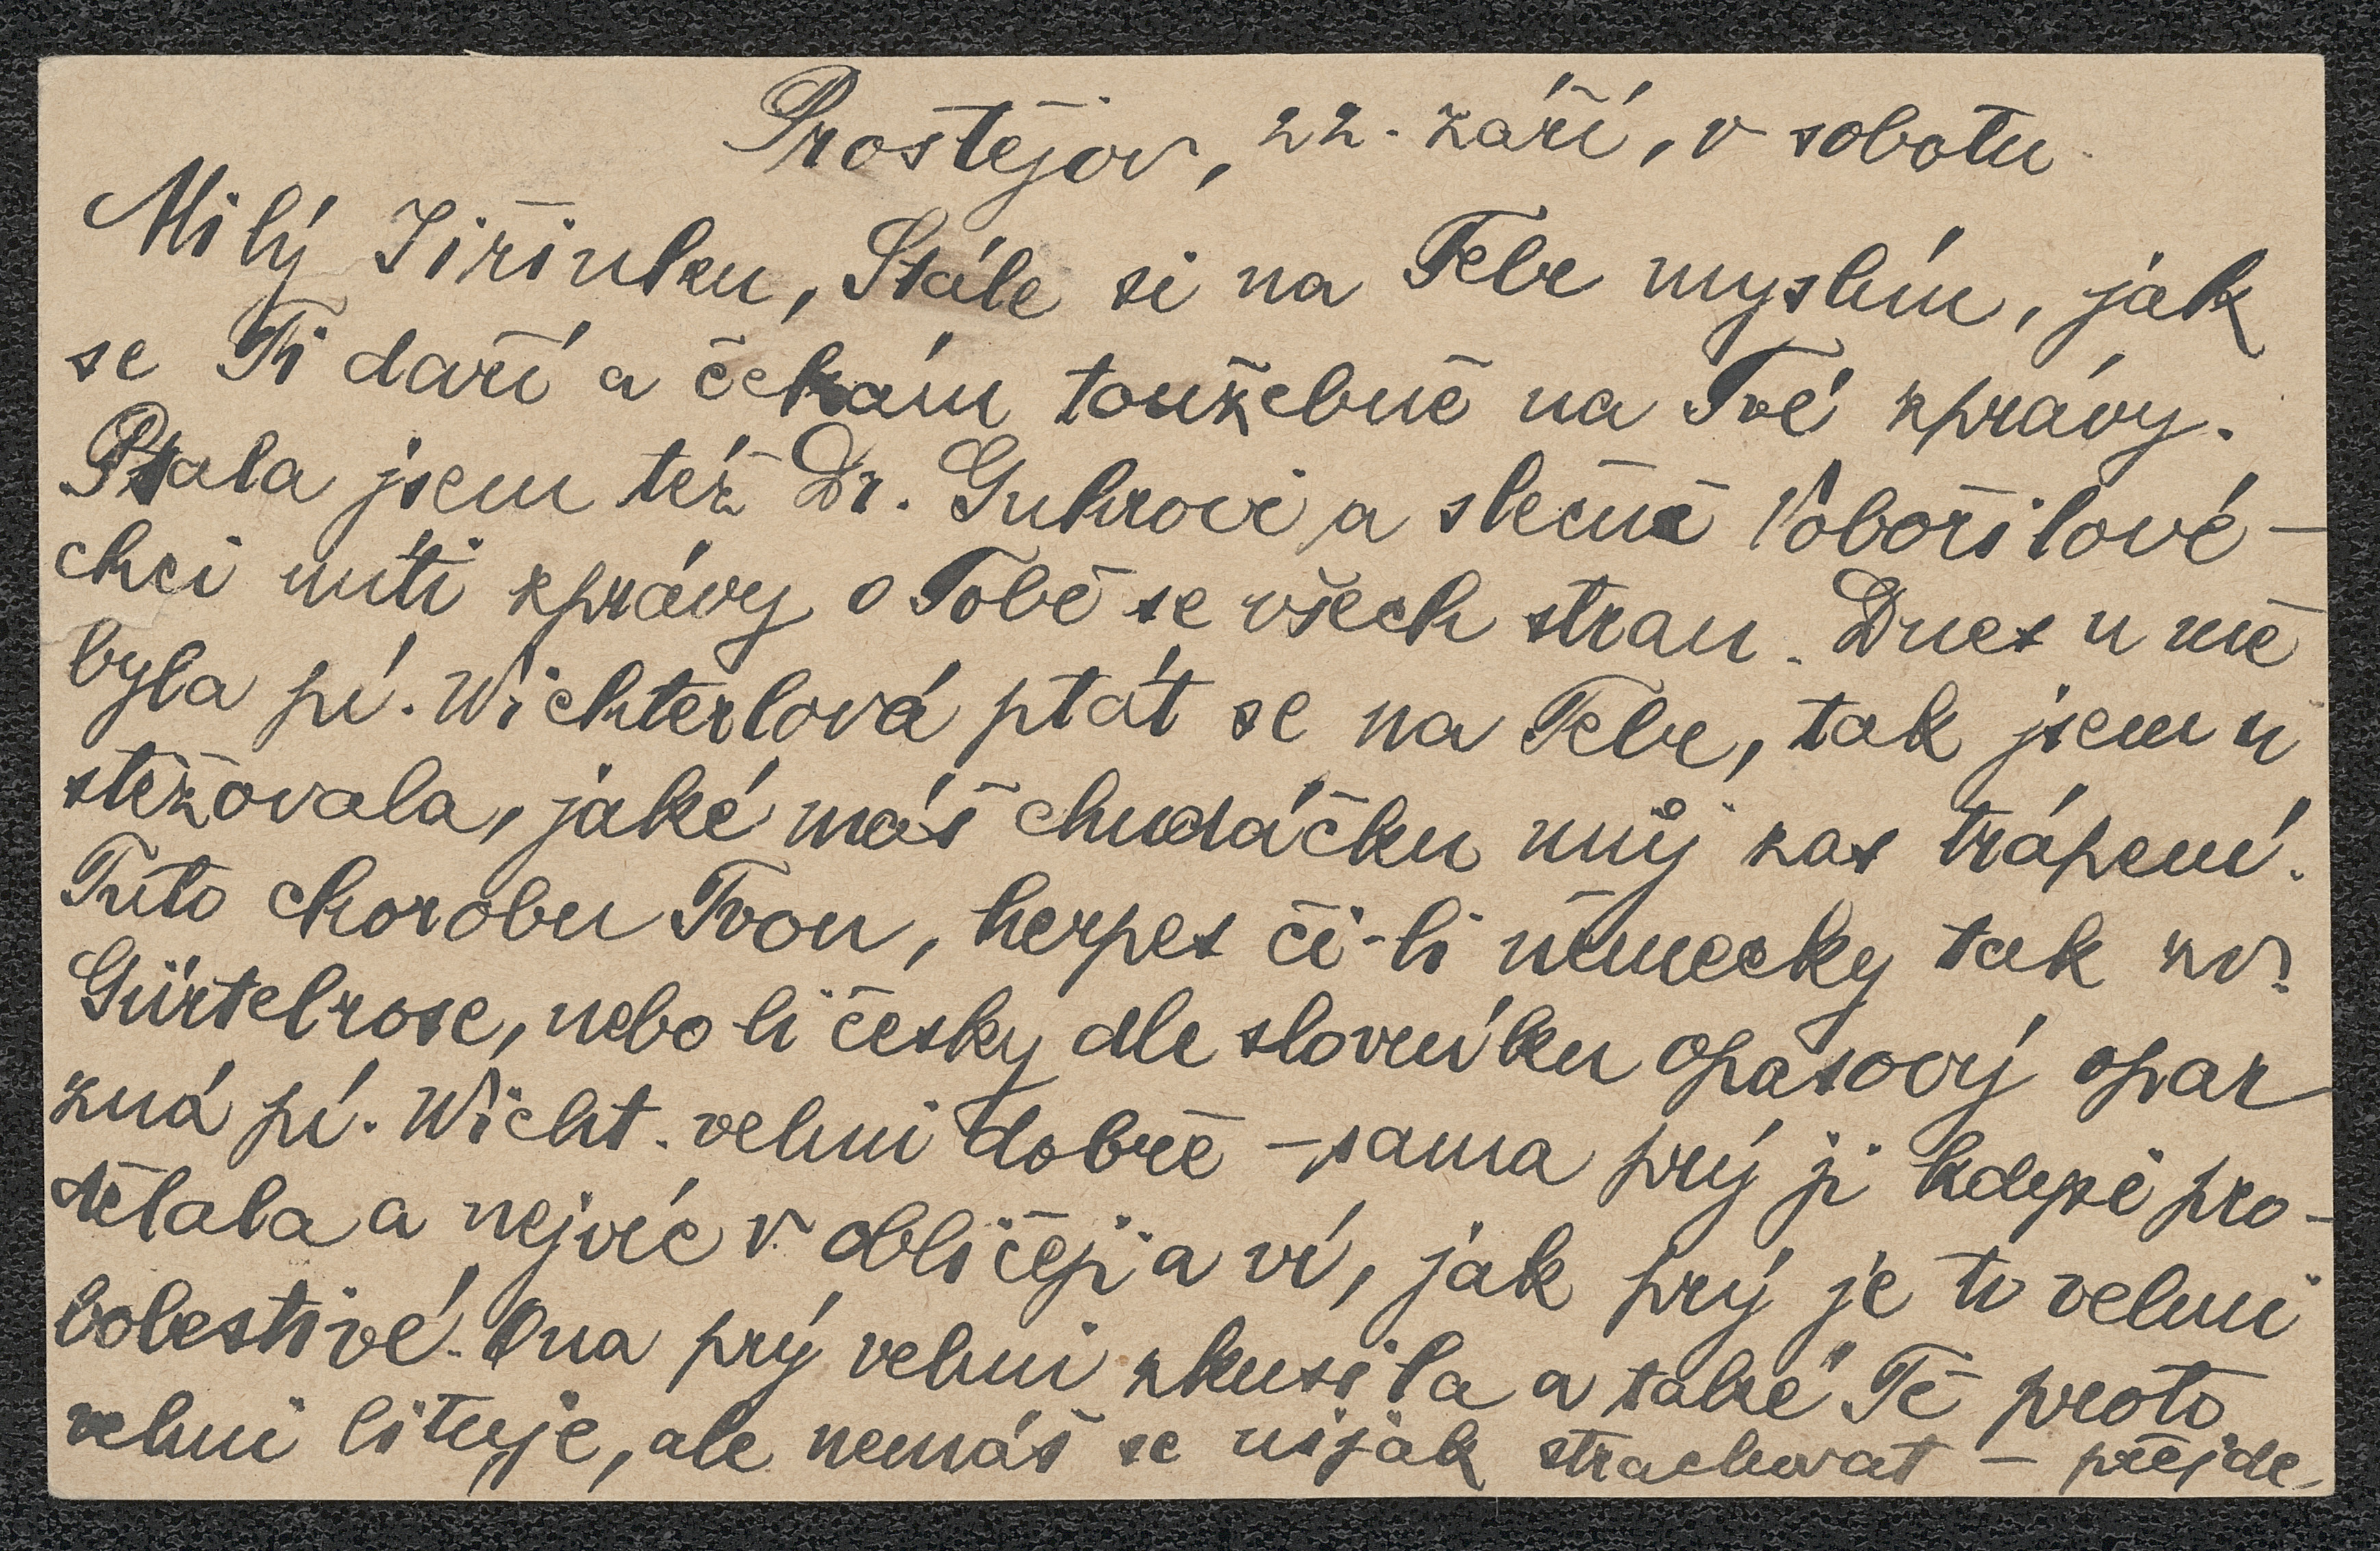 Prostějov, 22. září, v sobotu.
Milý Jiřinku, Stále si na Tebe myslím, jak
se Ti daří a čekám toužebně na Tvé zprávy.
Psala jsem též Dr. Guhrovi a slečně Vobořilové –
chci míti zprávy o Tobě se všech stran. Dnes u mě
byla pí. Wichterlová ptát se na Tebe, tak jsem si
stěžovala, jaké máš chudáčku můj zas trápení.
Tuto chorobu Tvou, herpes či-li německy tak zv.
Gürtelrose, nebo li česky dle slovníku opasový opar
zná pí. Wicht. velmi dobře – sama prý ji kdysi pro-
dělala a nejvíc v obličeji a ví, jak prý je to velmi
bolestivé. Ona prý velmi zkusila a také Tě proto
velmi lituje, ale nemáš se nijak strachovat – přejde